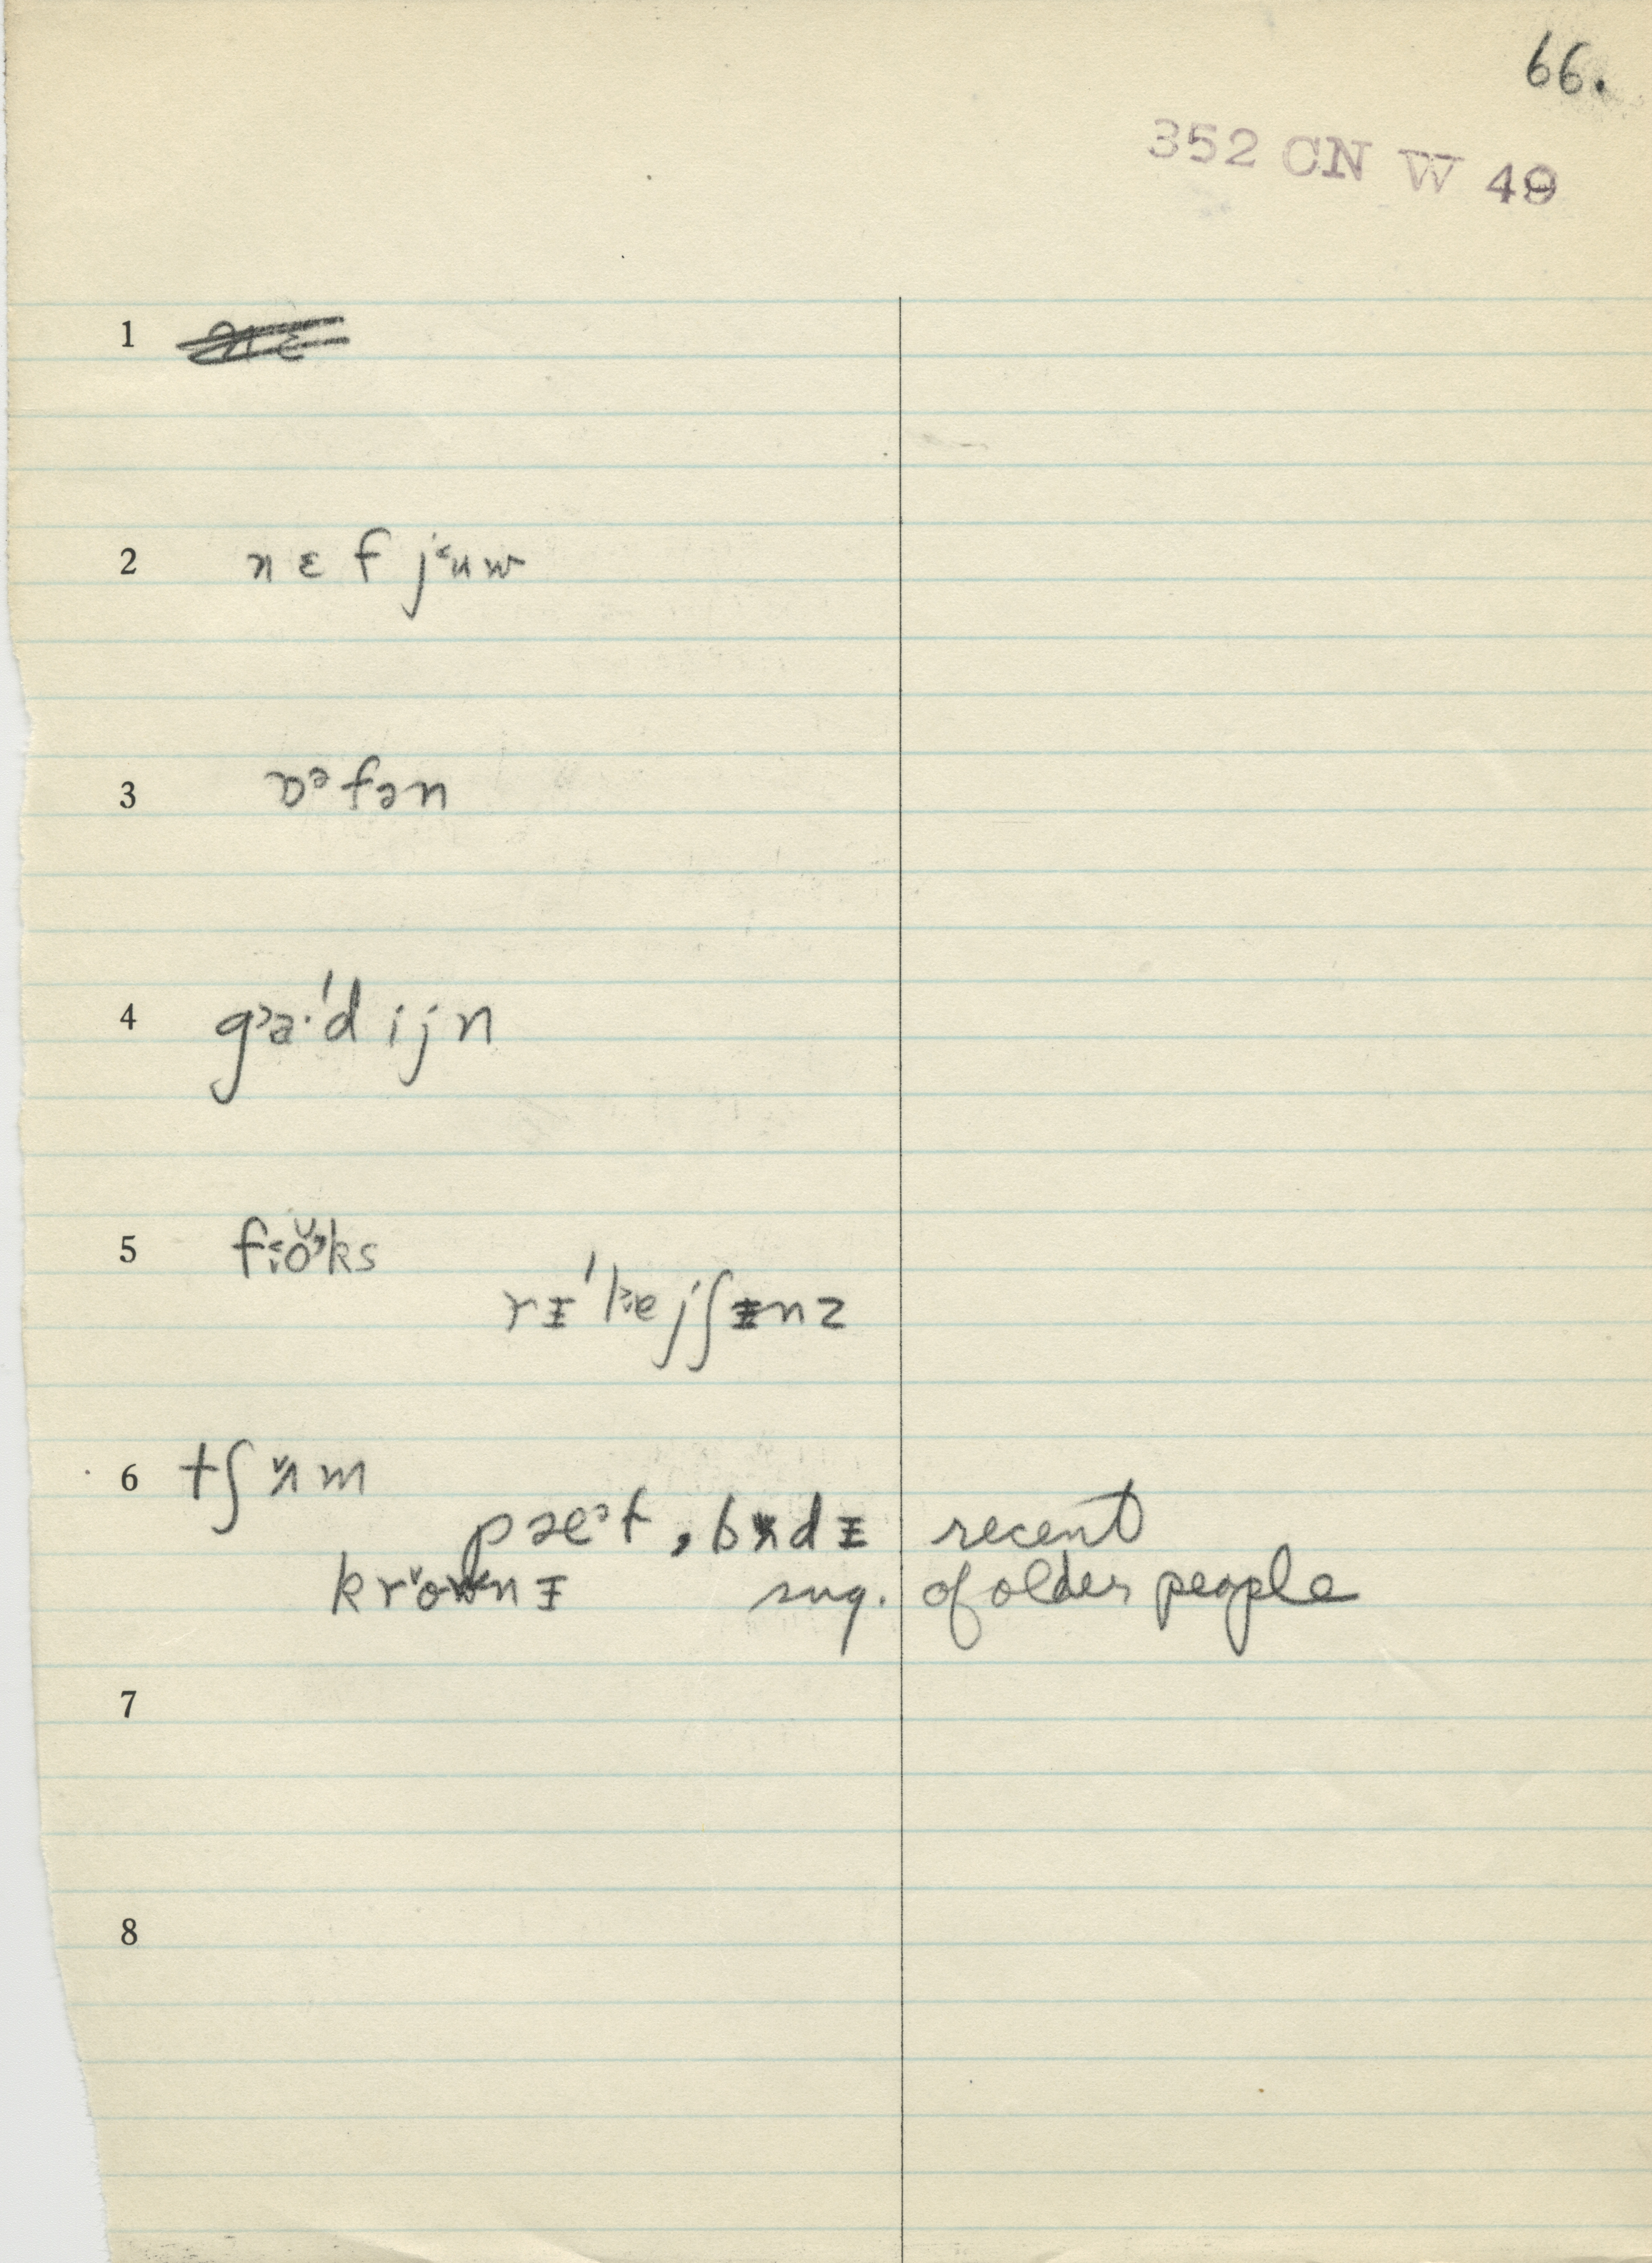 66.
352 CN W 49
1
2 n ɛ f j˂ʉw
3 ɒᵊfən
4 gᵓa·'dijn
5 f
rɪ'lejʃɪnz
6 tʃʌ̆m
pæᵊt, bʌdɪ recent
krownɪ sug. of older people
7
8